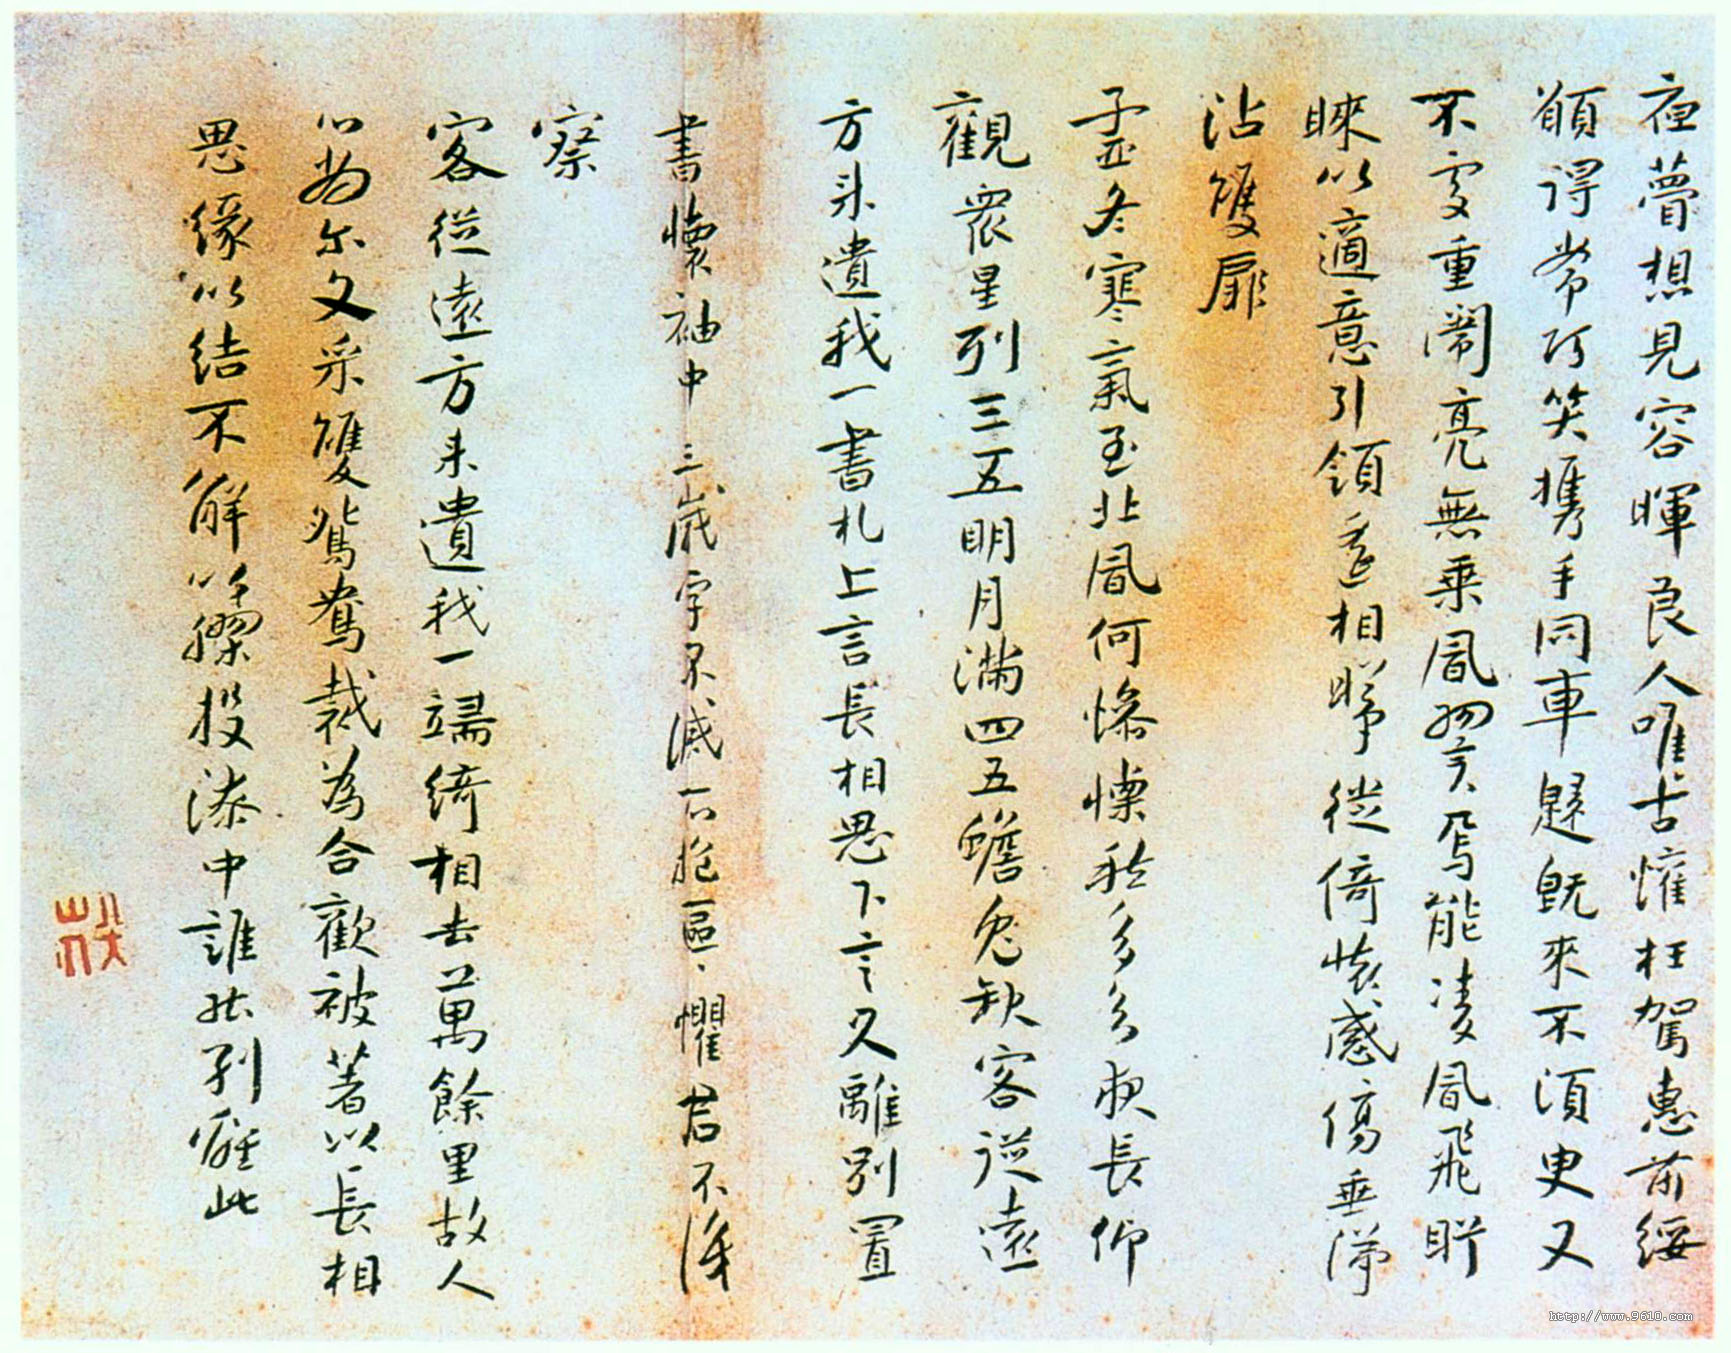 夜夢想見容暉良人唯古懽枉駕惠前綏
願得常巧笑攜手同車歸既來不須臾又
不處重闈亮無晨風翼焉能凌風飛眄
睞以適意引領遙相睎徙倚懷感傷垂涕
沾雙扉
孟冬寒氣至北風何慘慄愁多知夜長仰
觀眾星列三五明月滿四五蟾兔缺客從遠
方來遺我一書札上言長相思下言久離別置
書懷袖中三歲字不滅一心抱區〻懼君不識
察
客從遠方來遺我一端綺相去萬餘里故人
心尚爾文采雙鴛鴦裁為合歡被著以長相
思緣以結不解以膠投漆中誰能別離此
http://www.9610.com